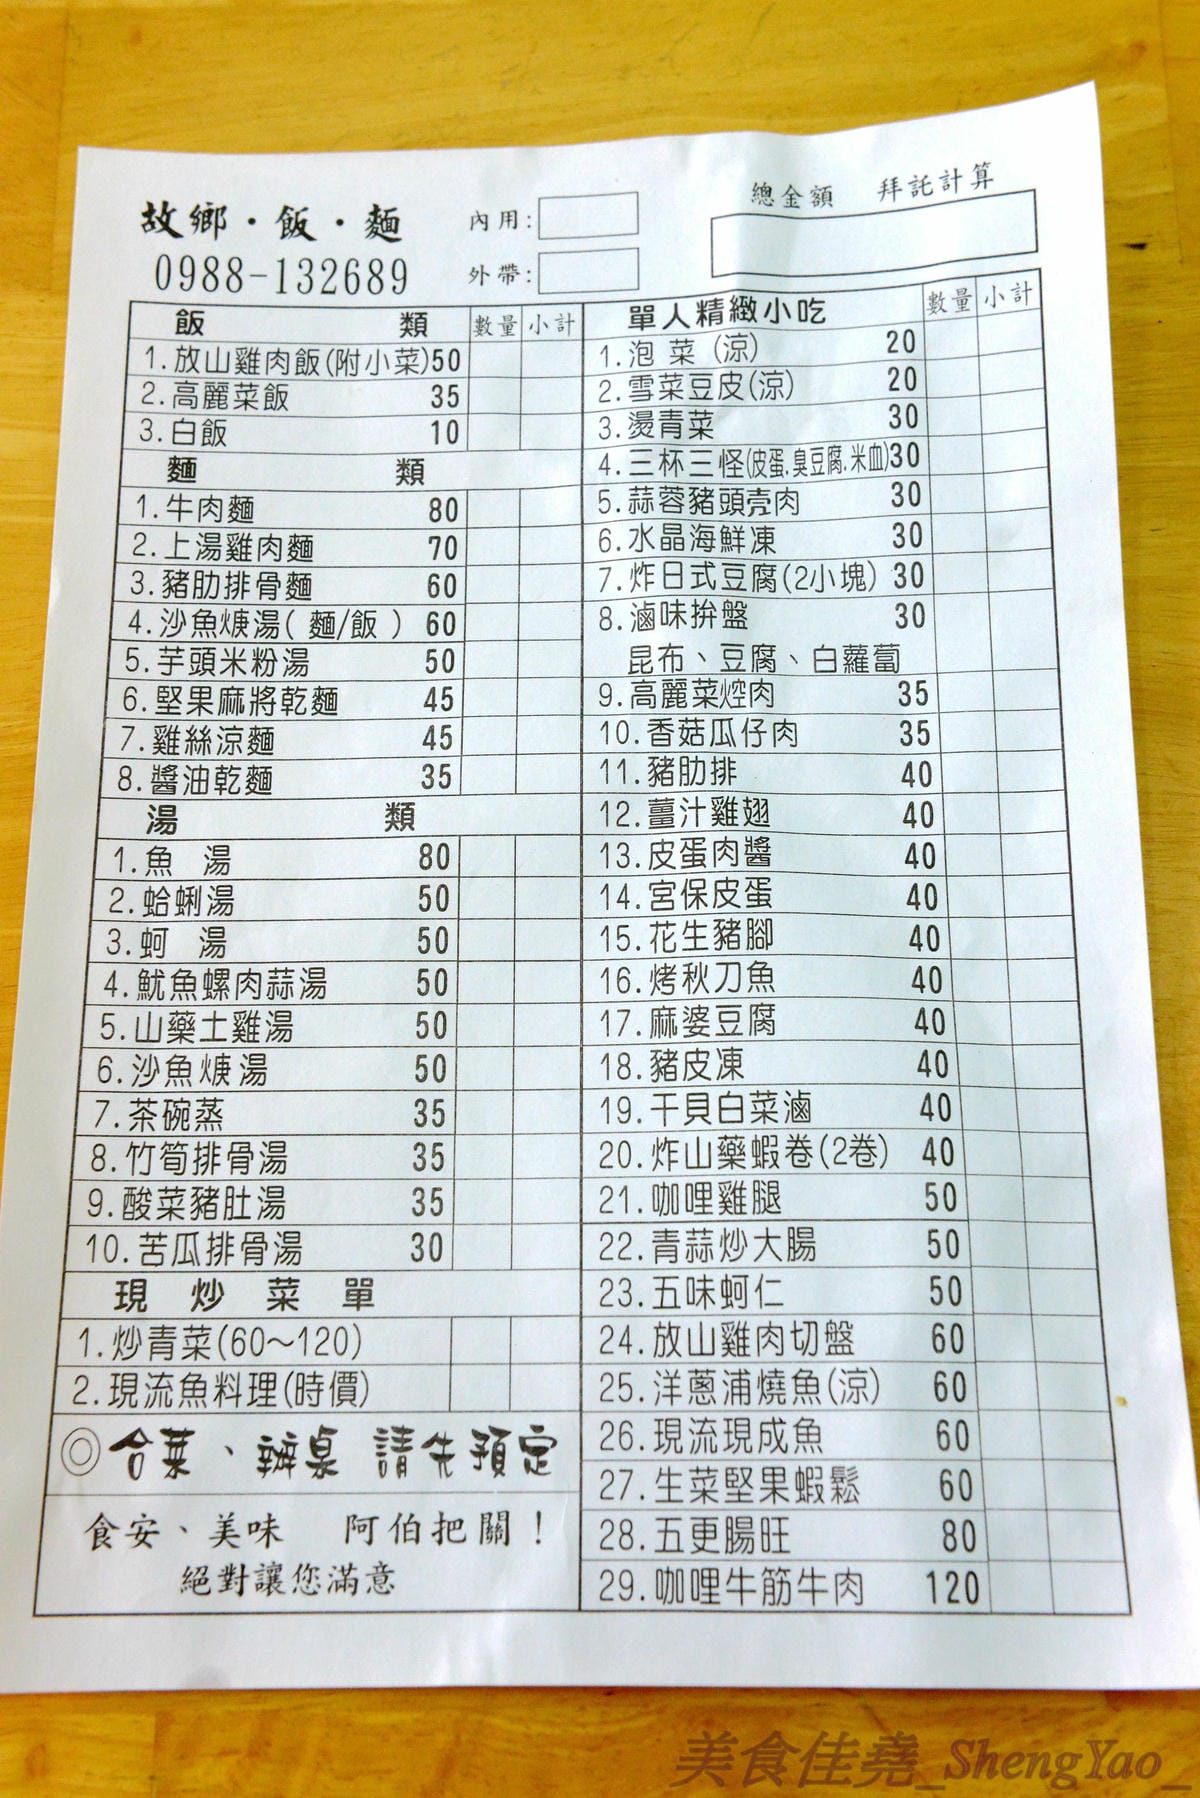 故鄉・飯・麵
0988-132689
內用:
外帶:
總金額 拜託計算
飯 類 數量 小計
1.放山雞肉飯(附小菜)50
2.高麗菜飯 35
3.白飯 10
麵 類
1.牛肉麵 80
2.上湯雞肉麵 70
3.豬肋排骨麵 60
4.沙魚焿湯( 麵/飯 ) 60
5.芋頭米粉湯 50
6.堅果麻將乾麵 45
7.雞絲涼麵 45
8.醬油乾麵 35
湯 類
1.魚 湯 80
2.蛤蜊湯 50
3.蚵 湯 50
4.魷魚螺肉蒜湯 50
5.山藥土雞湯 50
6.沙魚焿湯 50
7.茶碗蒸 35
8.竹筍排骨湯 35
9.酸菜豬肚湯 35
10.苦瓜排骨湯 30
現 炒 菜 單
1.炒青菜(60～120)
2.現流魚料理(時價)
◎合菜、辦桌 請先預定
食安、美味 阿伯把關！
絕對讓您滿意
單人精緻小吃 數量 小計
1.泡 菜 (涼) 20
2.雪菜豆皮(涼) 20
3.燙青菜 30
4.三杯三怪(皮蛋.臭豆腐.米血)30
5.蒜蓉豬頭壳肉 30
6.水晶海鮮凍 30
7.炸日式豆腐(2小塊) 30
8.滷味拚盤 30
昆布、豆腐、白蘿蔔
9.高麗菜焢肉 35
10.香菇瓜仔肉 35
11.豬肋排 40
12.薑汁雞翅 40
13.皮蛋肉醬 40
14.宮保皮蛋 40
15.花生豬腳 40
16.烤秋刀魚 40
17.麻婆豆腐 40
18.豬皮凍 40
19.干貝白菜滷 40
20.炸山藥蝦卷(2卷) 40
21.咖哩雞腿 50
22.青蒜炒大腸 50
23.五味蚵仁 50
24.放山雞肉切盤 60
25.洋蔥浦燒魚(涼) 60
26.現流現成魚 60
27.生菜堅果蝦鬆 60
28.五更腸旺 80
29.咖哩牛筋牛肉 120
美食佳堯_ShengYao_